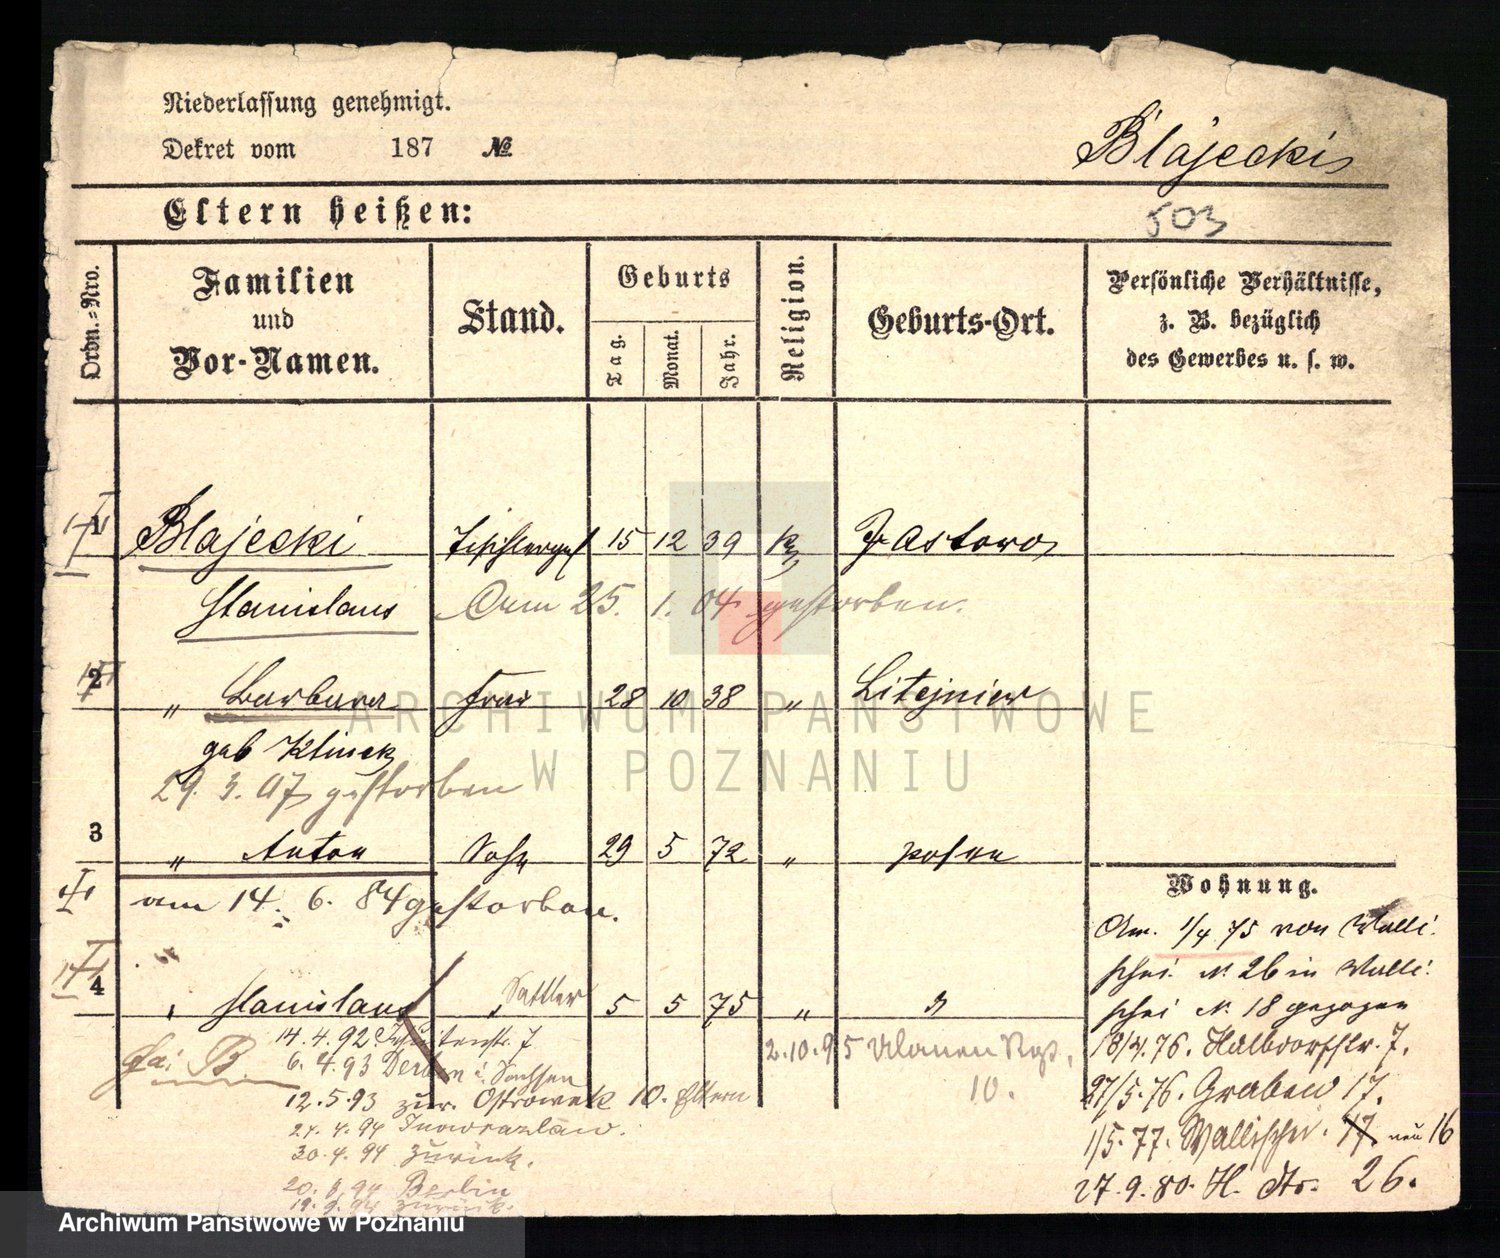 Niederlassung genehmigt.
Dekret vom 187 №
Blajecki
Eltern heißen:
503
Ordn.-Nro.
Familien
und
Vor-Namen.
Stand.
Geburts
Tag.
Monat.
Jahr.
Religion.
Geburts-Ort.
Persönliche Verhältnisse,
z. B. bezüglich
des Gewerbes u. s. w.
1 Blajecki Tischlerges 15 12 39 K Zastowo
Stanislaus Am 25. 1. 04 gestorben.
2 " Barbara Frau 28 10 38 " Litejnier
geb Klinek
29. 3. 07 gestorben
3 " Anton Sohn 29 5 72 " Posen
am 14. 6. 84 gestorben.
4 " Stanislaus " Sattler 5 5 75 " "
14.4.92 Jesuitenstr. 7
Fa: B.
6. 4.93 i. Sachsen
12.5.93 zur. Ostrowek 10. Eltern
4.94 Inowrazlaw.
30.4.94 zurück.
20. 94 Berlin
19.9.94 zurück.
2.10.95 Ulanen Rgt.
10.
Wohnung.
Am. 1/4 75 von Walli
schei N. 26 in Walli
schei N. 18 gezogen
18/4.76. Halbdorfstr. 7.
27/5.76. Graben 17.
1/5.77. Wallischei. 17 neu 16
27.9.80. H. Str. 26.
ARCHIWUM PAŃSTWOWE
W POZNANIU
Archiwum Państwowe w Poznaniu